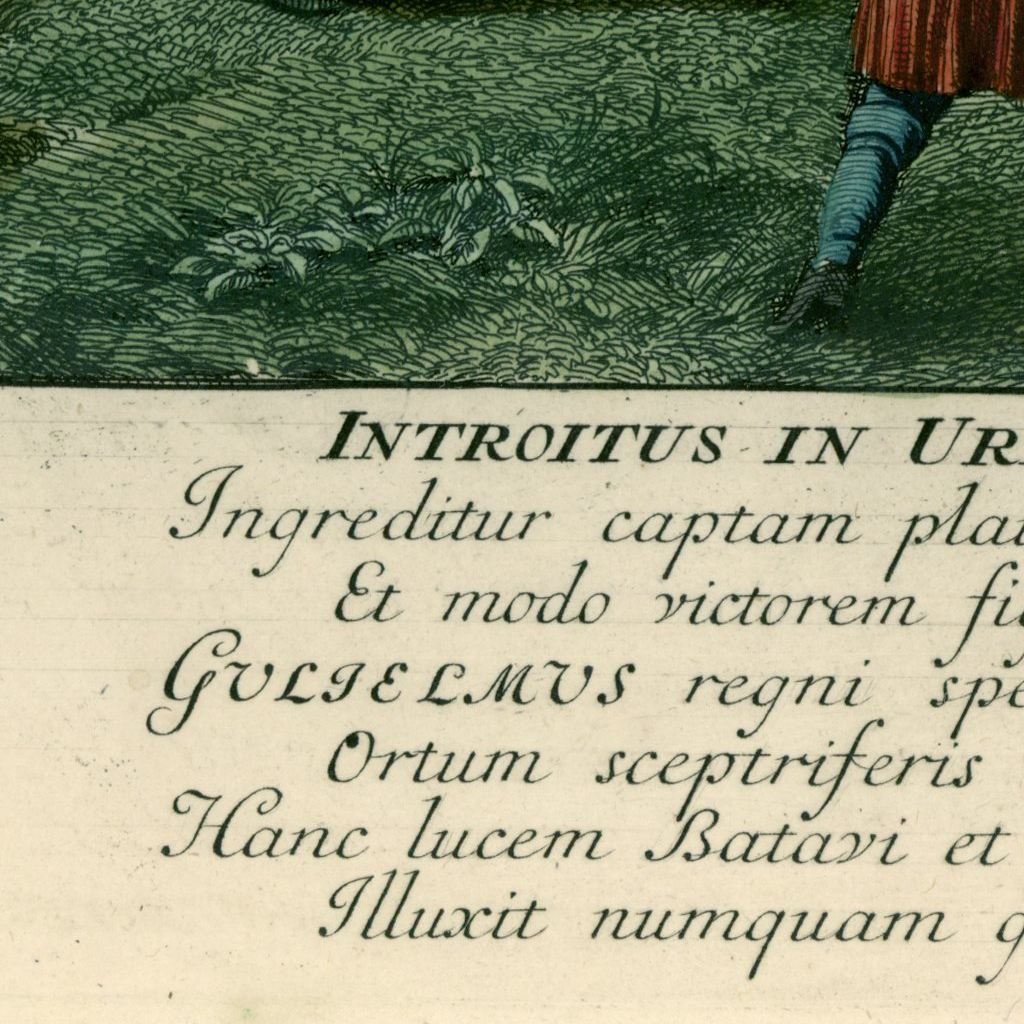 INTROITUS IN UR
Ingreditur captam plau
Et modo victorem fi
GVLIELMVS regni spe
Ortum sceptriferis
Hanc lucem Batavi et
Illuxit numquam